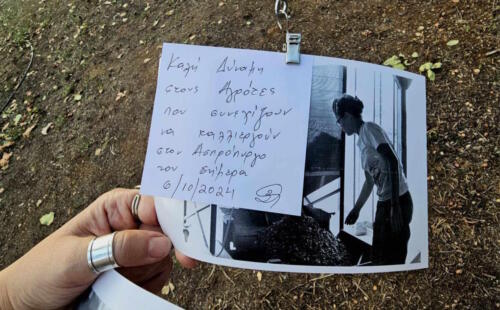 Καλή Δύναμη
στους Αγρότες
που συνεχίζουν
να καλλιεργούν
στον Ασπρόπυργο
του σήμερα
6/10/2024